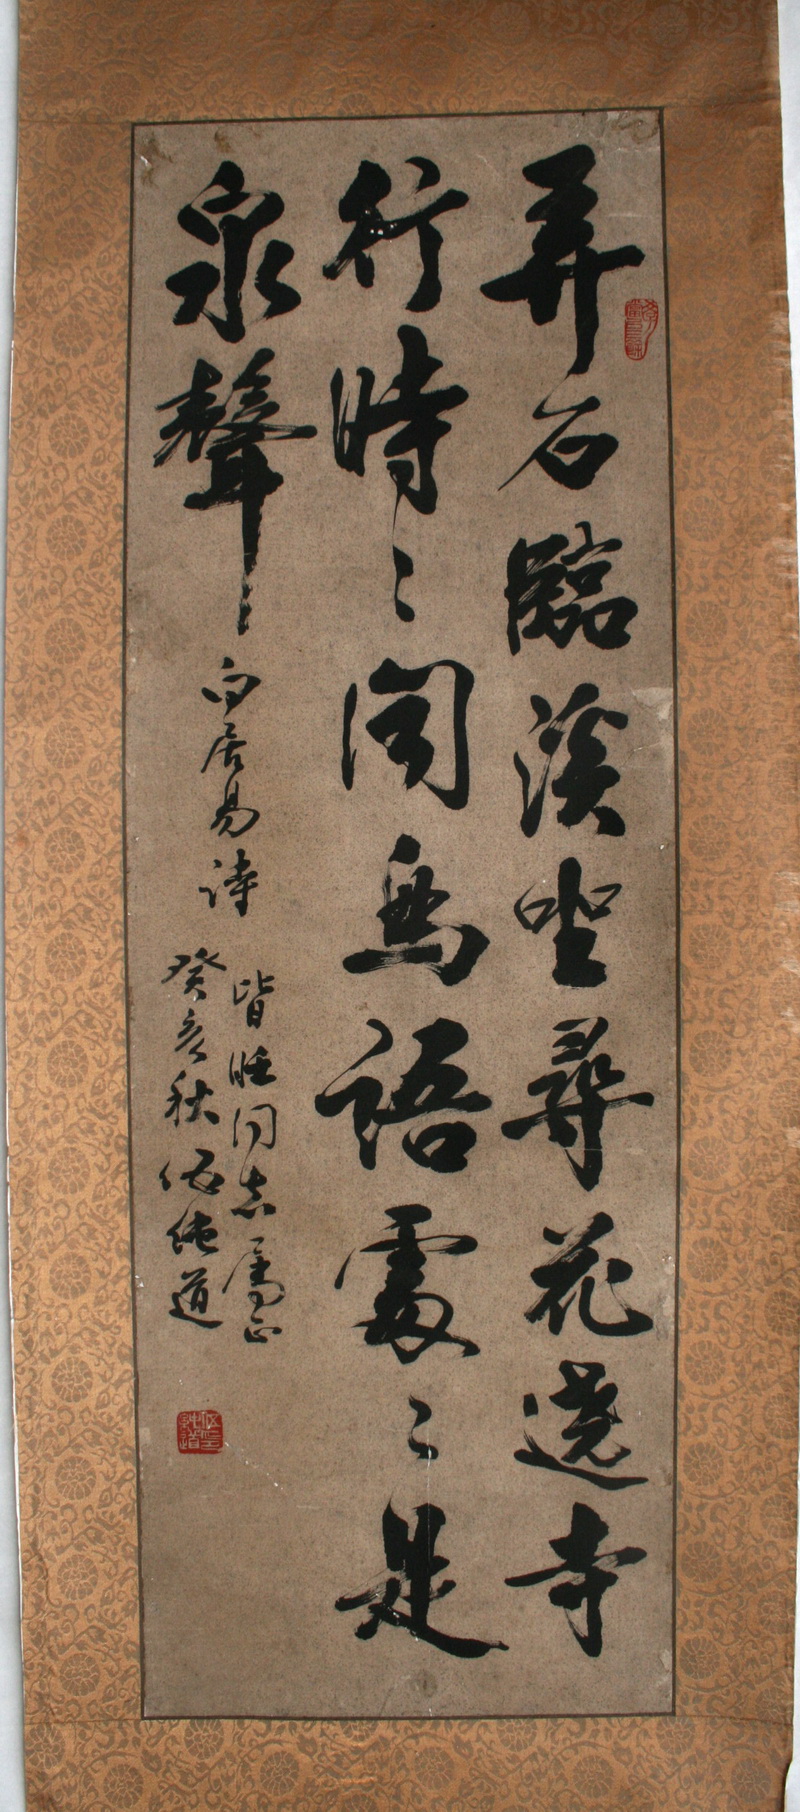 弄石臨溪坐尋花遶寺
行時〻聞鳥語處〻是
泉聲
白居易詩
皆旺同志屬正
癸亥秋伍純道